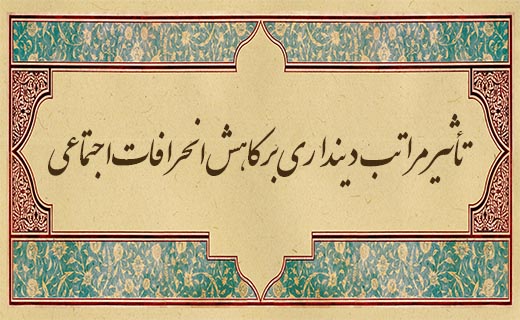 تأثیر مراتب دینداری بر کاهش انحرافات اجتماعی